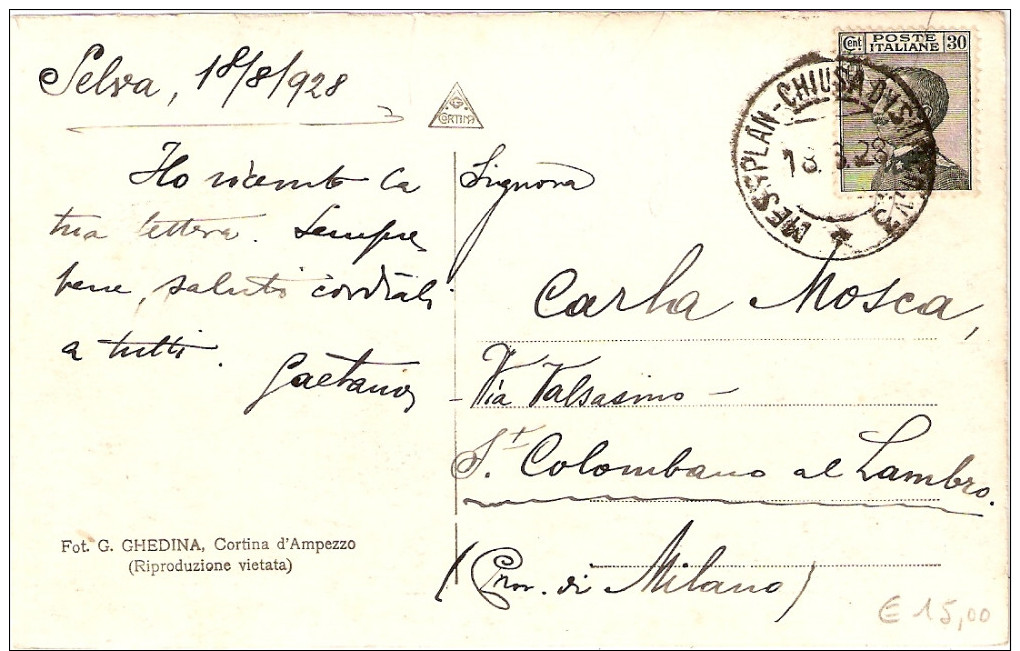 Selva, 18/8/928
Ho ricevuto la
tua lettera. Sempre
bene, saluti cordiali
a tutti.
Gaetano
Fot. G. GHEDINA, Cortina d'Ampezzo
(Riproduzione vietata)
G.
CORTINA
Cent POSTE ITALIANE 30
MESS. PLAN-CHIUSA DI S.
18.8.28
Signora
Carla Mosca,
Via Valsasino
St. Colombano al Lambro.
(Prov. di Milano)
€ 15,00